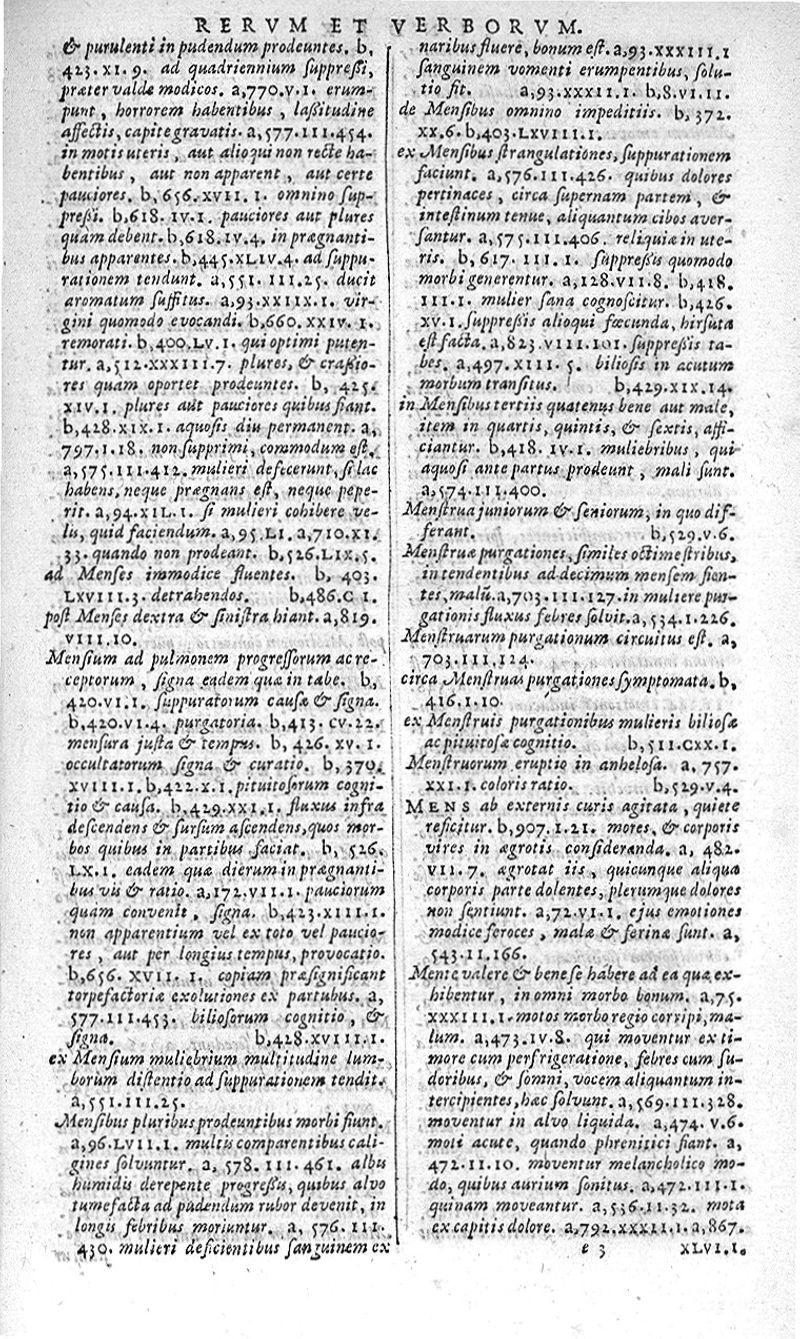 RERVM ET VERBORVM.
& purulenti in pudendum prodeuntes. b,
423.XI.9. ad quadriennium suppreßi,
præter valde modicos. a,770.V.I. erum-
punt, horrorem habentibus, laßitudine
affectis, capite gravatis. a,577.III.454.
in motis uteris, aut alioqui non recte ha-
bentibus, aut non apparent, aut certe
pauciores. b,656.XVII.I. omnino sup-
preßi. b,618.IV.I. pauciores aut plures
quàm debent. b,618.IV.4. in prægnanti-
bus apparentes. b,445.XLIV.4. ad suppu-
rationem tendunt. a,551.III.25. ducit
aromatum suffitus. a,93.XXIIX.I. vir-
gini quomodo evocandi. b,660.XXIV.I.
remorati. b,400.LV.I. qui optimi puten-
tur. a,512.XXXIII.7. plures, & craßio-
res quam oportet prodeuntes. b, 425.
XIV.I. plures aut pauciores quibus fiant.
b,428.XIX.I. aquosis diu permanent. a,
797.I.18. non supprimi, commodum est.
a,575.III.412. mulieri defecerunt, si lac
habens, neque prægnans est, neque pepe-
rit. a,94.XIL.I. si mulieri cohibere ve-
lis, quid faciendum. a,95.LI. a,710.XI.
33. quando non prodeant. b,526.LIX.5.
ad Menses immodice fluentes. b, 403.
LXVIII.3. detrahendos. b,486.C I.
post Menses dextra & sinistra hiant. a,819.
VIII.10.
Mensium ad pulmonem progressorum ac re-
ceptorum, signa eadem quæ in tabe. b,
420.VI.I. suppuratorum causæ & signa.
b,420.VI.4. purgatoria. b,413.CV.22.
mensura justa & tempus. b, 426. XV. I.
occultatorum signa & curatio. b, 370.
XVIII.I. b,422.X.I. pituitosorum cogni-
tio & causa. b,429.XXI.I. fluxus infra
descendens & sursum ascendens, quos mor-
bos quibus in partibus faciat. b, 526.
LX.I. eadem quæ dierum in prægnanti-
bus vis & ratio. a,172.VII.I. pauciorum
quam convenit, signa. b,423.XIIII.I.
non apparentium vel ex toto vel paucio-
res, aut per longius tempus, provocatio.
b,656. XVII. I. copiam præsignificant
torpefactoriæ exolutiones ex partubus. a,
577.III.453. biliosorum cognitio, &
signa. b,428.XVIII.I.
ex Mensium muliebrium multitudine lum-
borum distentio ad suppurationem tendit.
a,551.III.25.
Mensibus pluribus prodeuntibus morbi fiunt.
a,96.LVII.I. multis comparentibus cali-
gines solvuntur. a, 578. III. 461. albis
humidis derepente progreßis, quibus alvo
tumefacta ad pudendum rubor devenit, in
longis febribus moriuntur. a, 576. III.
430. mulieri deficientibus sanguinem ex
naribus fluere, bonum est. a,93.XXXIII.I
sanguinem vomenti erumpentibus, solu-
tio fit. a,93.XXXII.I. b,8.VI.II.
de Mensibus omnino impeditiis. b,372.
XX.6. b,403.LXVIII.I.
ex Mensibus strangulationes, suppurationem
faciunt. a,576.III.426. quibus dolores
pertinaces, circa supernam partem, &
intestinum tenue, aliquantum cibos aver-
santur. a,575.III.406. reliquiæ in ute-
ris. b, 617. III. I. suppreßis quomodo
morbi generentur. a,128.VII.8. b,418.
III.I. mulier sana cognoscitur. b,426.
XV.I. suppreßis alioqui fœcunda, hirsuta
est facta. a,823.VIII.101. suppreßis ta-
bes. a,497.XIII.5. biliosis in acutum
morbum transitus. b,429.XIX.14.
in Mensibus tertiis quatenus bene aut male,
item in quartis, quintis, & sextis, affi-
ciantur. b,418. IV.I. muliebribus, qui
aquosi ante partus prodeunt, mali sunt.
a,574.III.400.
Menstrua juniorum & seniorum, in quo dif-
ferant. b,529.V.6.
Menstruæ purgationes, similes octimestribus,
in tendentibus ad decimum mensem fien-
tes, malũ. a,703.III.127. in muliere pur-
gationis fluxus febres solvit. a,534.I.226.
Menstruarum purgationum circuitus est. a,
703.III.124.
circa Menstruas purgationes symptomata. b,
416.I.10.
ex Menstruis purgationibus mulieris biliosæ
ac pituitosæ cognitio. b,511.CXX.I.
Menstruorum eruptio in anhelosa. a, 757.
XXI.I. coloris ratio. b,529.V.4.
MENS ab externis curis agitata, quiete
reficitur. b,907.I.21. mores, & corporis
vires in ægrotis consideranda. a, 482.
VII.7. ægrotat iis, quicunque aliqua
corporis parte dolentes, plerumque dolores
non sentiunt. a,72.VI.I. ejus emotiones
modice feroces, malæ & ferinæ sunt. a,
543.II.166.
Mente valere & bene se habere ad ea quæ ex-
hibentur, in omni morbo bonum. a,75.
XXXIII.I. motos morbo regio corripi, ma-
lum. a,473.IV.8. qui moventur ex ti-
more cum perfrigeratione, febres cum su-
doribus, & somni, vocem aliquantum in-
tercipientes, hæc solvunt. a,569.III.328.
moventur in alvo liquida. a,474. V.6.
moti acute, quando phrenitici fiant. a,
472.II.10. moventur melancholico mo-
do, quibus aurium sonitus. a,472.III.I.
quinam moveantur. a,536.II.32. mota
ex capitis dolore. a,792.XXXII.I. a,867.
e 3 XLVI.I.